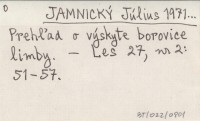 0
JAMNICKÝ Július 1971...
Prehľad o výskyte borovice
limby. – Les 27, nr 2:
51-57.